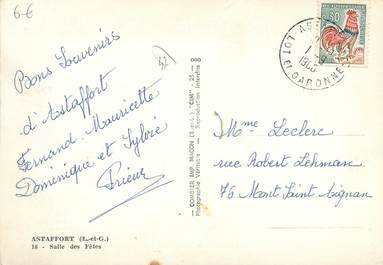 6-E
42
Bons Souvenirs
d'Astaffort
Fernand Mauricette
Dominique et Sylvie
Prieur
ASTAFFORT (L.-et-G.)
18 - Salle des Fêtes
COMBIER IMP. MACON (S.-et-L.) "CIM"
Photographie Véritable - Reproduction Interdite
0,30
LOT ET GARONNE
Mme Leclerc
rue Robert Lehman
76 Mont Saint Aignan